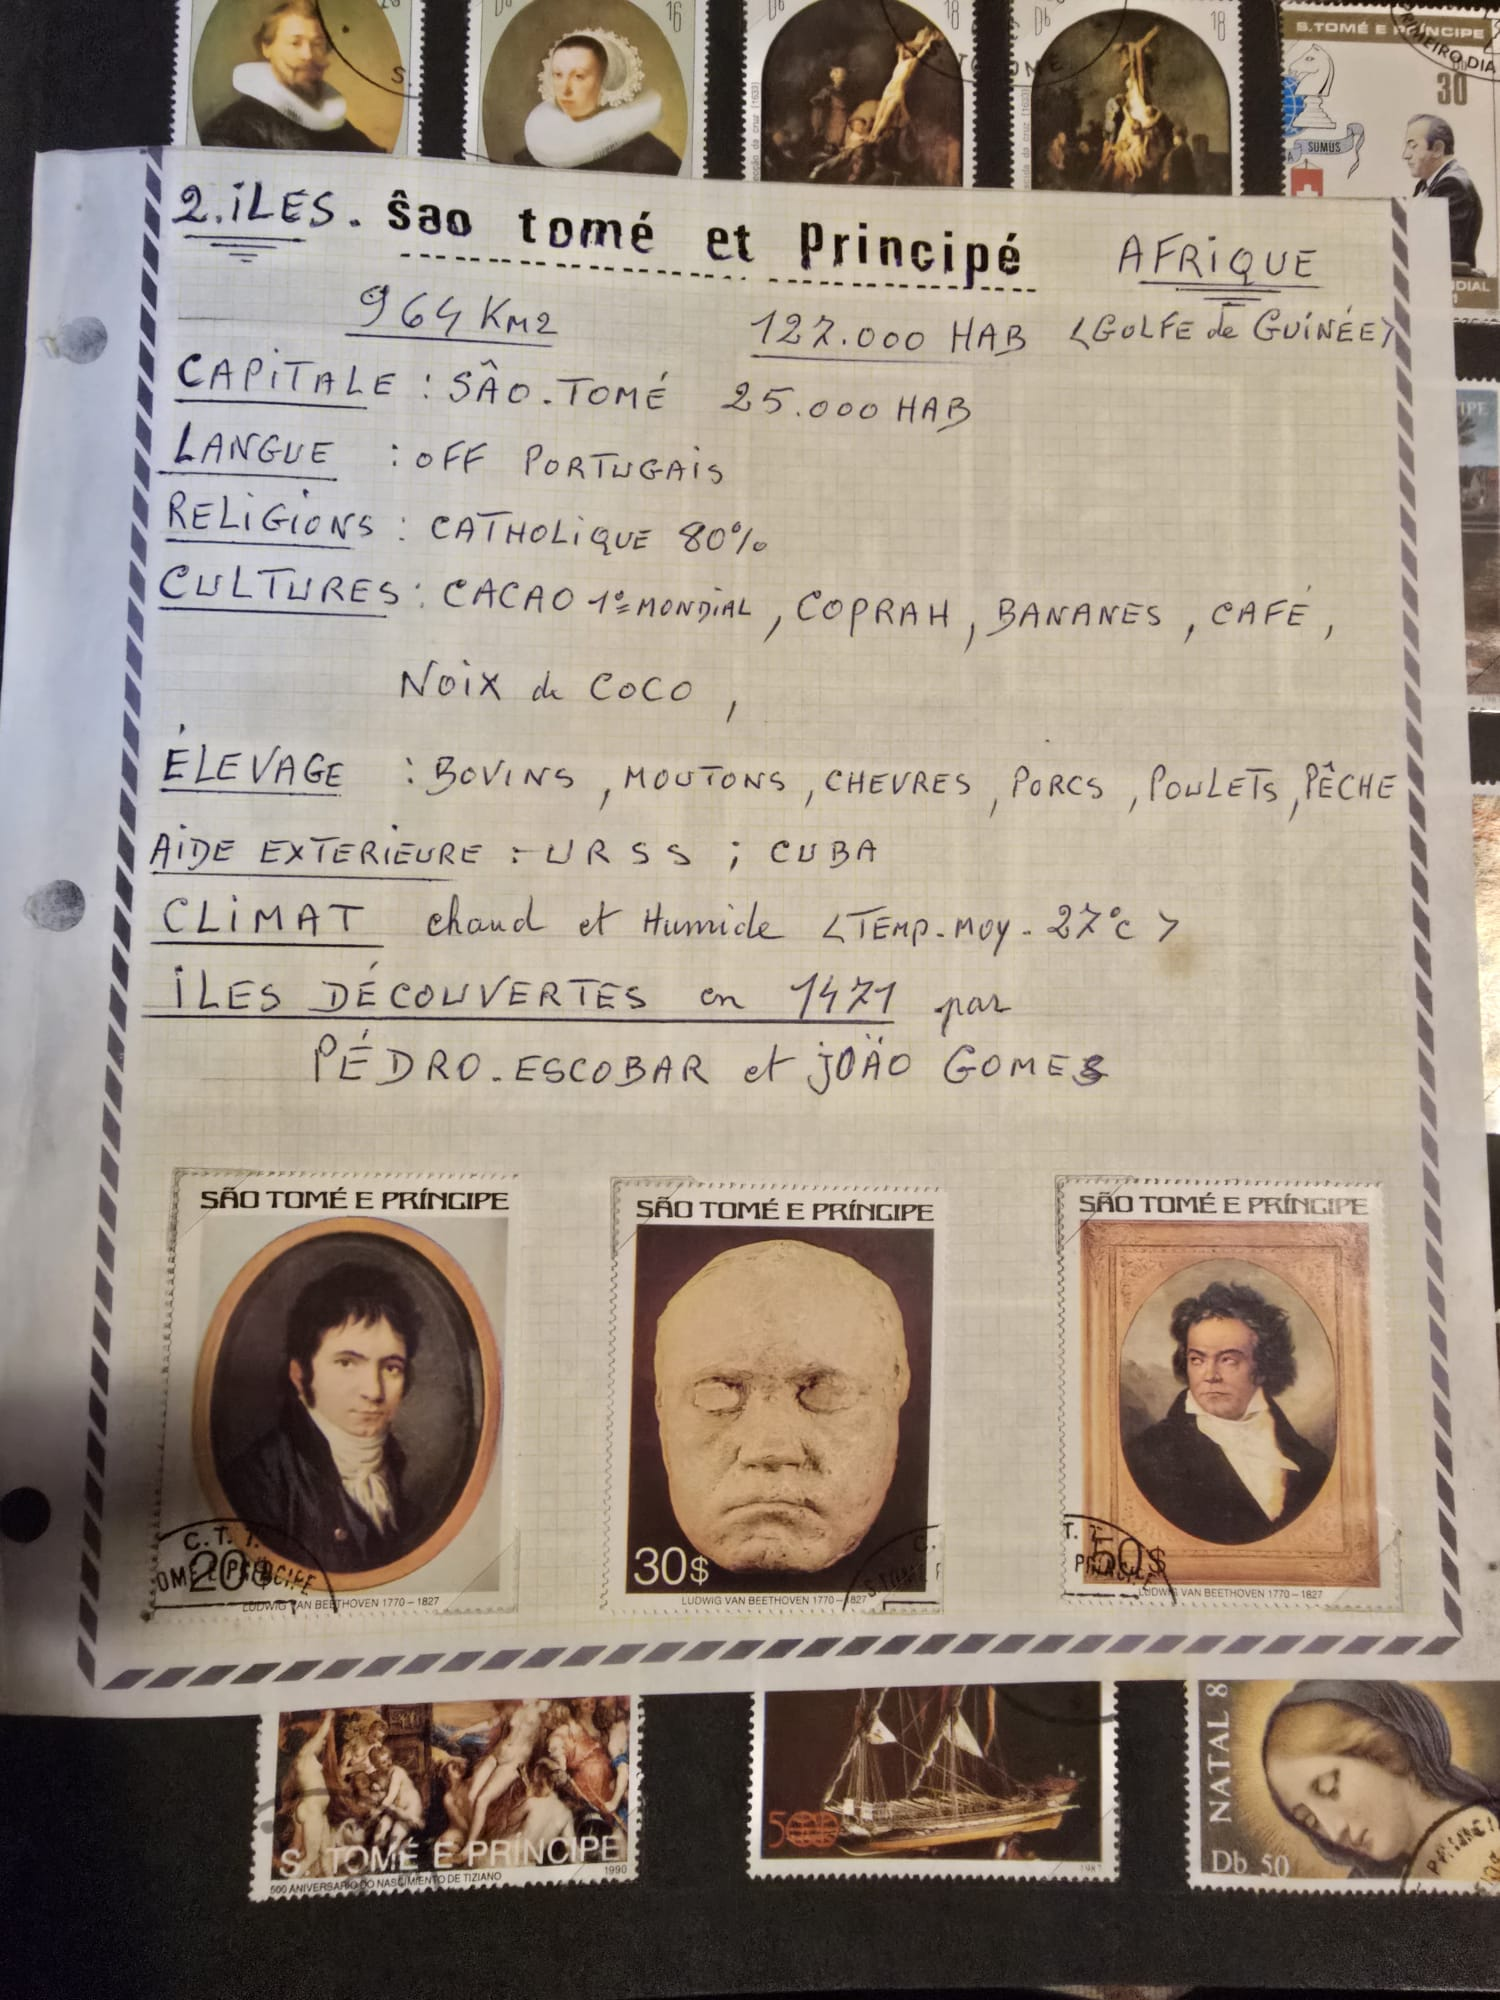 16
18
18
S.TOMÉ E PRÍNCIPE
PRIMEIRO DIA
30
SUMUS
2.ÎLES. Ŝao tomé et Principé AFRIQUE
964 KM2 127.000 HAB <GOLFE de GUINÉE>
CAPITALE : SÂO.TOMÉ 25.000 HAB
LANGUE : OFF PORTUGAIS
RELIGIONS : CATHOLIQUE 80%
CULTURES : CACAO 1º MONDIAL, COPRAH, BANANES, CAFÉ,
NOIX de COCO,
ÉLEVAGE : BOVINS, MOUTONS, CHEVRES, PORCS, POULETS, PÊCHE
AIDE EXTERIEURE : URSS ; CUBA
CLIMAT chaud et Humide <TEMP. MOY. 27°C>
ÎLES DÉCOUVERTES en 1471 par
PÉDRO.ESCOBAR et JOÄO GOMES
SÃO TOMÉ E PRÍNCIPE
C.T.T.
20$
LUDWIG VAN BEETHOVEN 1770–1827
SÃO TOMÉ E PRÍNCIPE
30$
LUDWIG VAN BEETHOVEN 1770–1827
SÃO TOMÉ E PRÍNCIPE
50$
LUDWIG VAN BEETHOVEN 1770–1827
S. TOMÉ E PRÍNCIPE
1990
500 ANIVERSARIO DO NASCIMENTO DE TIZIANO
1987
NATAL 8
Db 50